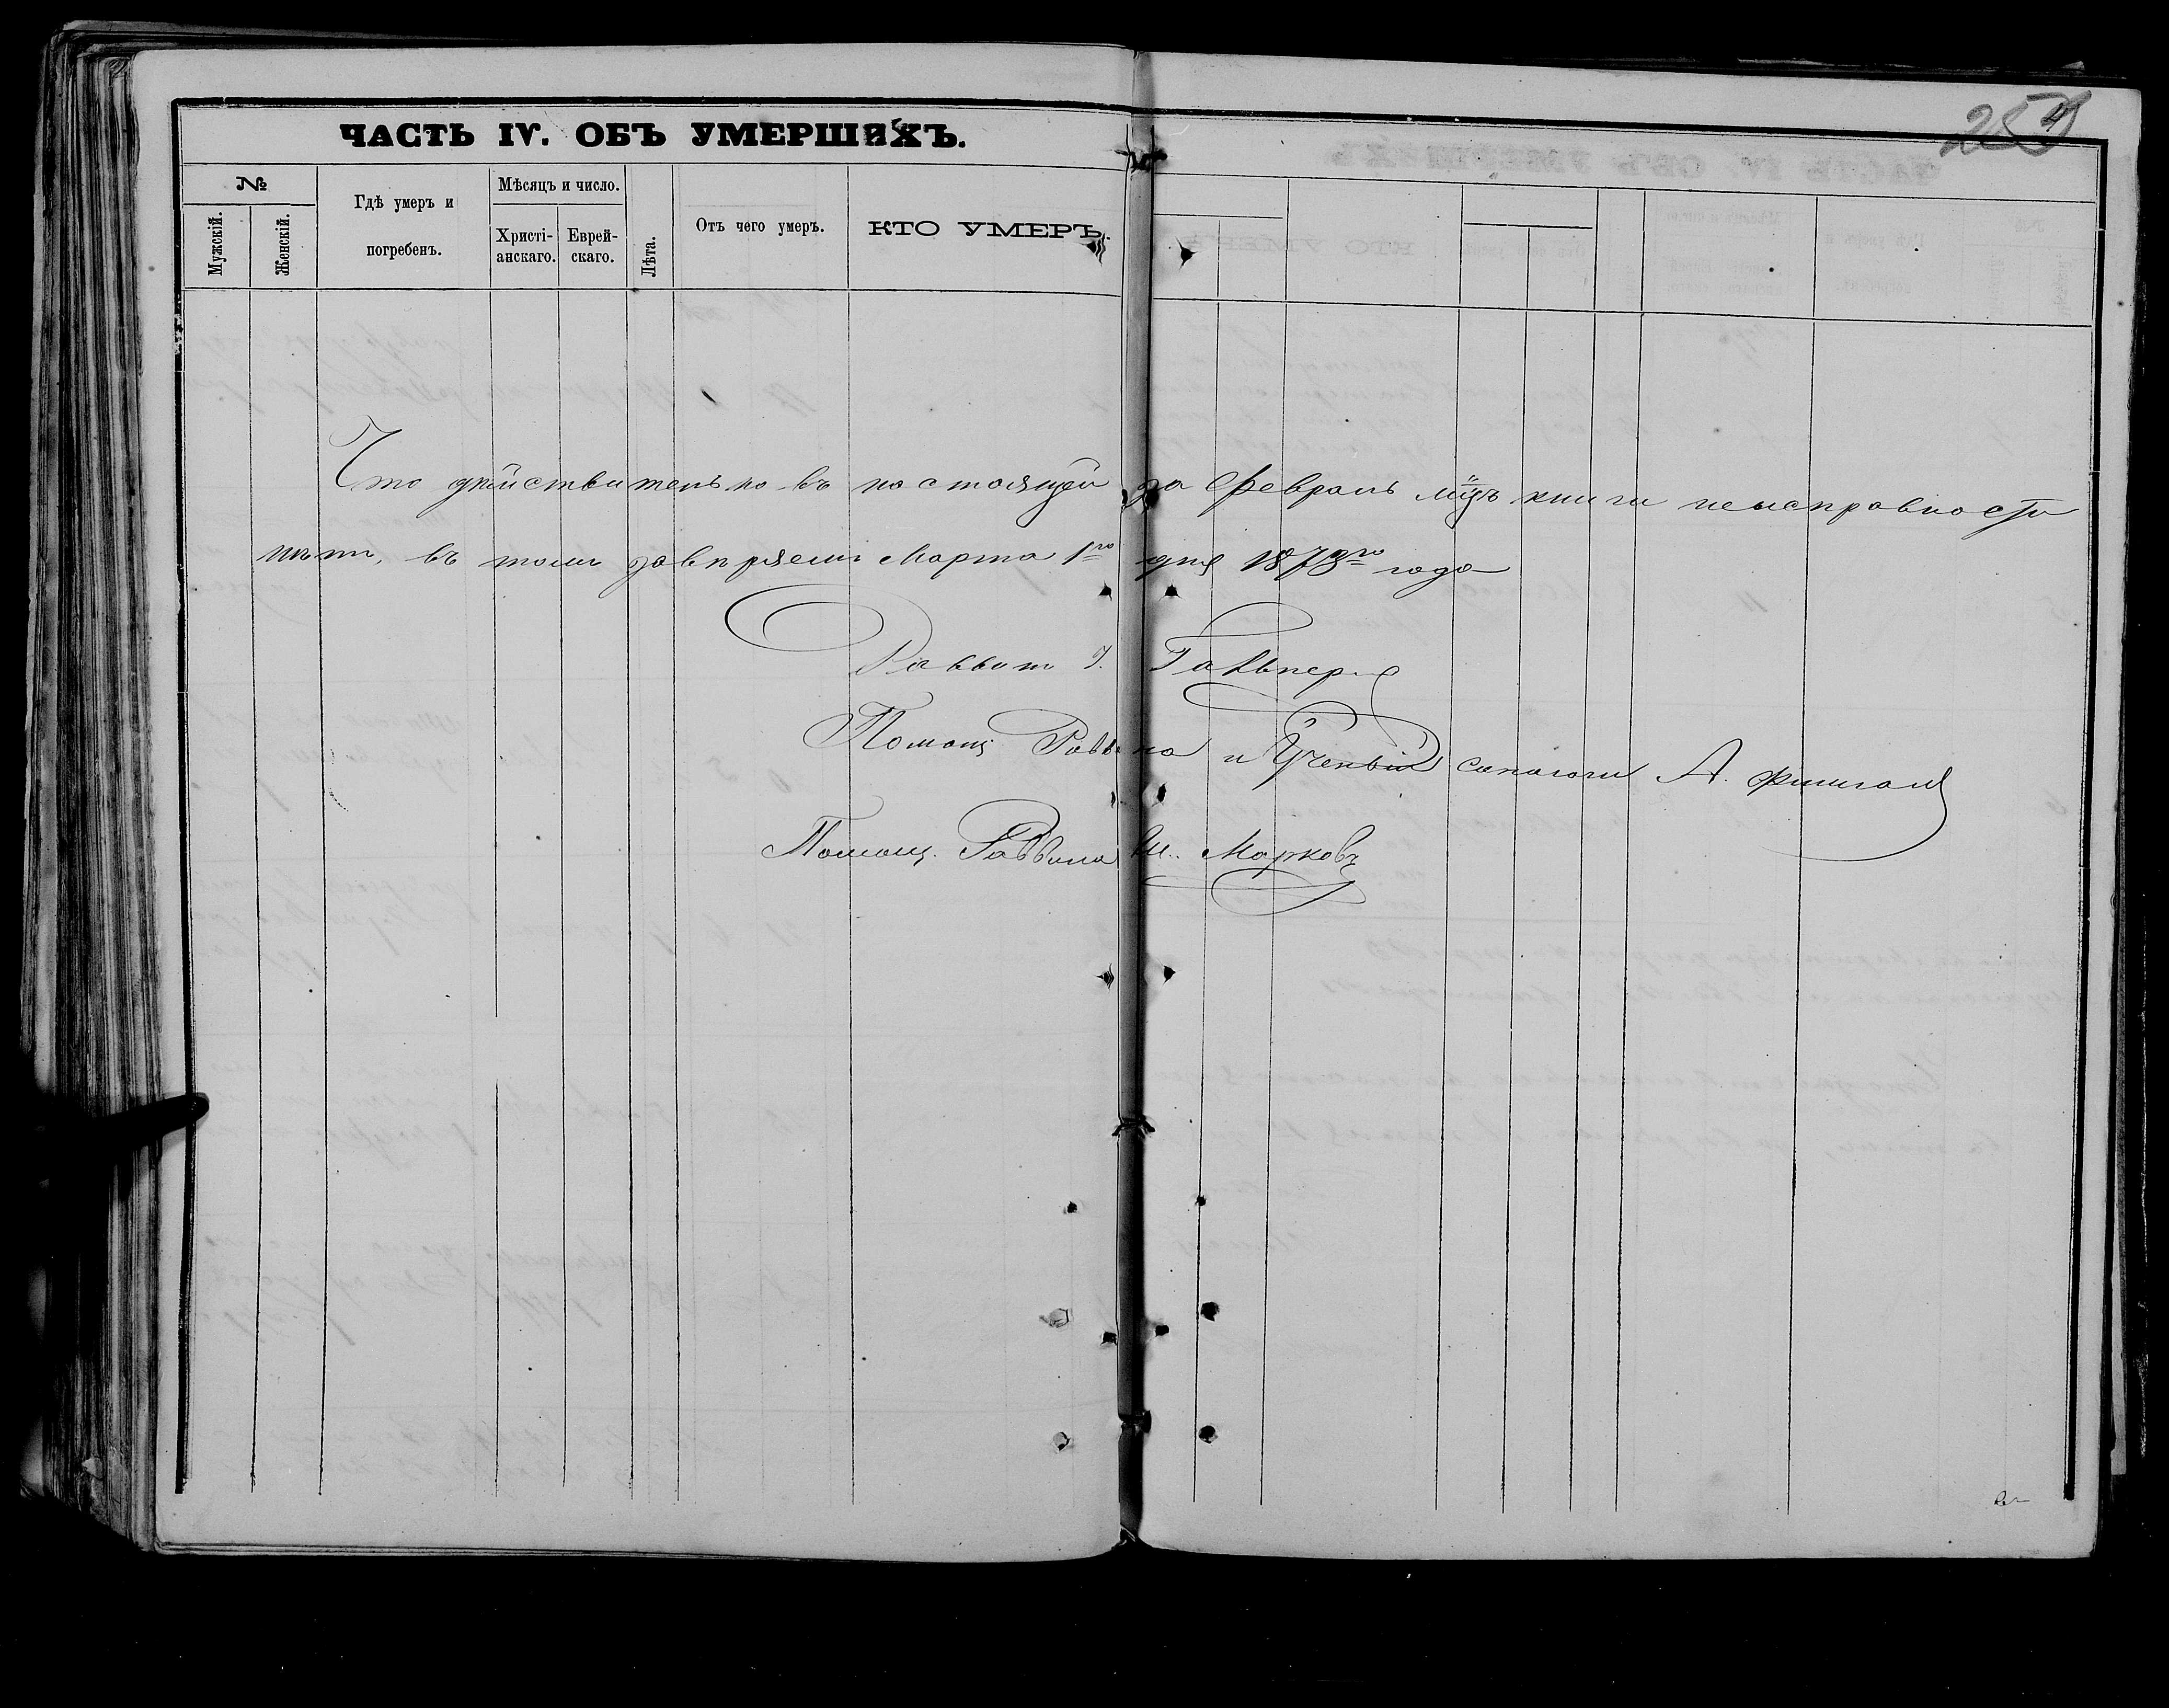 ЧАСТЬ IV. ОБЪ УМЕРШИХЪ.
№
Мужскій.
Женскій.
Гдѣ умеръ и
погребенъ.
Мѣсяцъ и число.
Христі-
анскаго.
Еврей-
скаго.
Лѣта.
Отъ чего умеръ.
КТО УМЕРЪ.
Что дѣйствительно въ настоящей за Февраль мцъ книги неисправности
нѣтъ, въ томъ завѣряемъ Марта 1го дня 1873го года
Раввинъ Г. Гальпер
Помощ Раввина и Ученый синагоги А.
Помощ. Раввина Ш. Марковъ